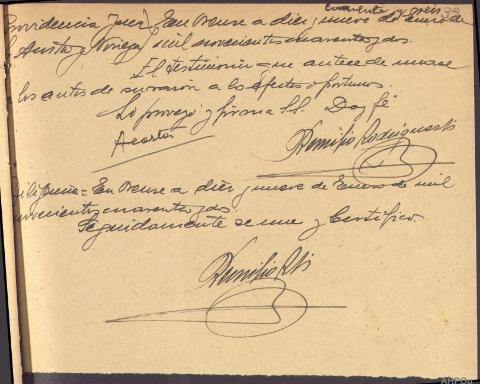 cuarenta y seis 32
Providencia Juez En Orense a diez y nueve de enero de
mil novecientos cuarenta y dos.
El testimonio que antecede unase
a los autos de su razón a los efectos oportunos.
Lo proveyó y firma S.S. Doy fé
Acosta
Remilio Rodriguez
Diligencia = En Orense a diez y nueve de Enero de mil
novecientos cuarenta y dos
Seguidamente se une y Certifico.